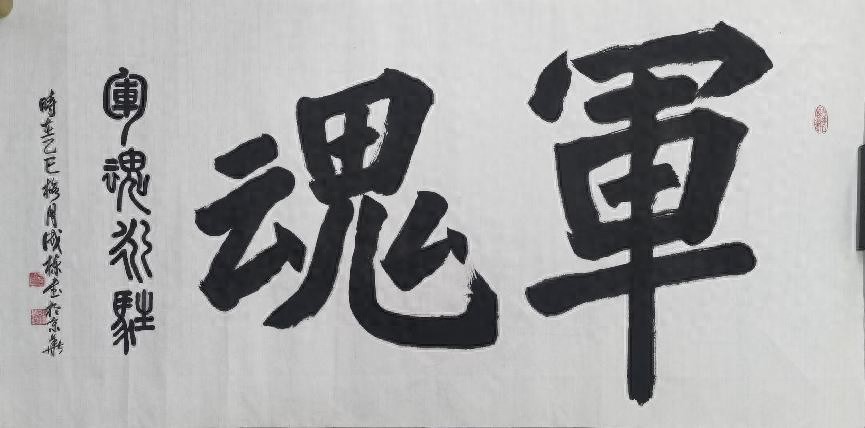 軍魂
軍魂永駐
時在乙巳梅月成棟書於京華